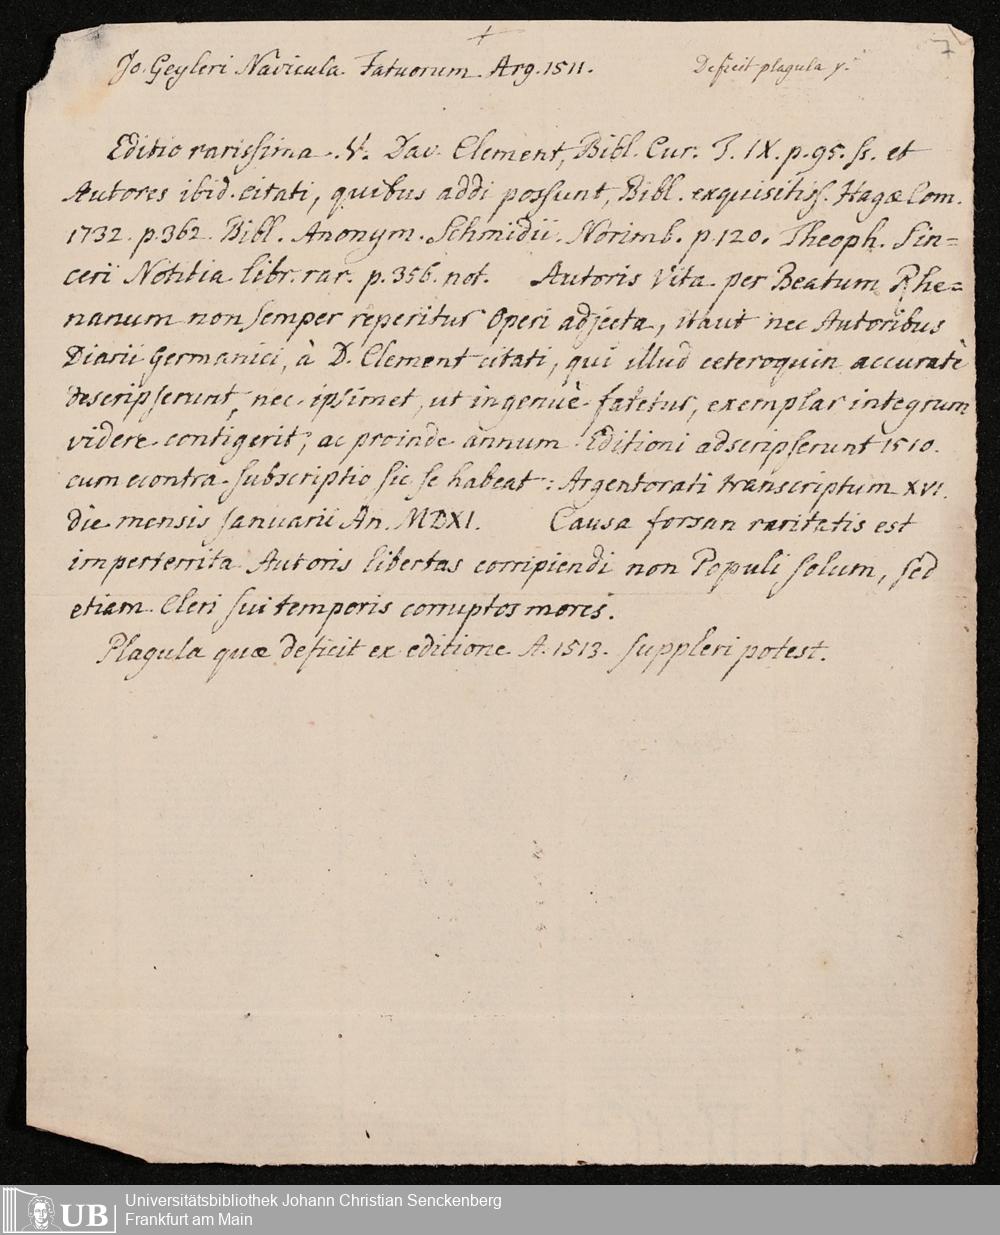 7
Jo. Geyleri Navicula Fatuorum Arg. 1511. Deficit plagula y.
Editio rarissima. V. Dav. Clement, Bibl. Cur. T. IX. p. 95. ss. et
Autores ibid. citati, quibus addi possunt, Bibl. exquisitiss. Hagæ Com.
1732. p. 362. Bibl. Anonym. Schmidii. Norimb. p. 120. Theoph. Sin=
ceri Notitia libr. rar. p. 356. not. Autoris Vita per Beatum Rhe=
nanum non semper reperitur Operi adjecta, itaut nec Autoribus
Diarii Germanici, à D. Clement citati, qui illud ceteroquin accuratè
descripserunt, nec ipsimet, ut ingenuè fatetur, exemplar integrum
videre contigerit, ac proinde annum Editioni adscripserunt 1510.
cum econtra subscriptio sic se habeat: Argentorati transcriptum XVI.
die mensis Januarii An. MDXI. Causa forsan raritatis est
imperterrita Autoris libertas corripiendi non Populi solum, sed
etiam Cleri sui temporis corruptos mores.
Plagula quæ deficit ex editione A. 1513. suppleri potest.
UB
Universitätsbibliothek Johann Christian Senckenberg
Frankfurt am Main